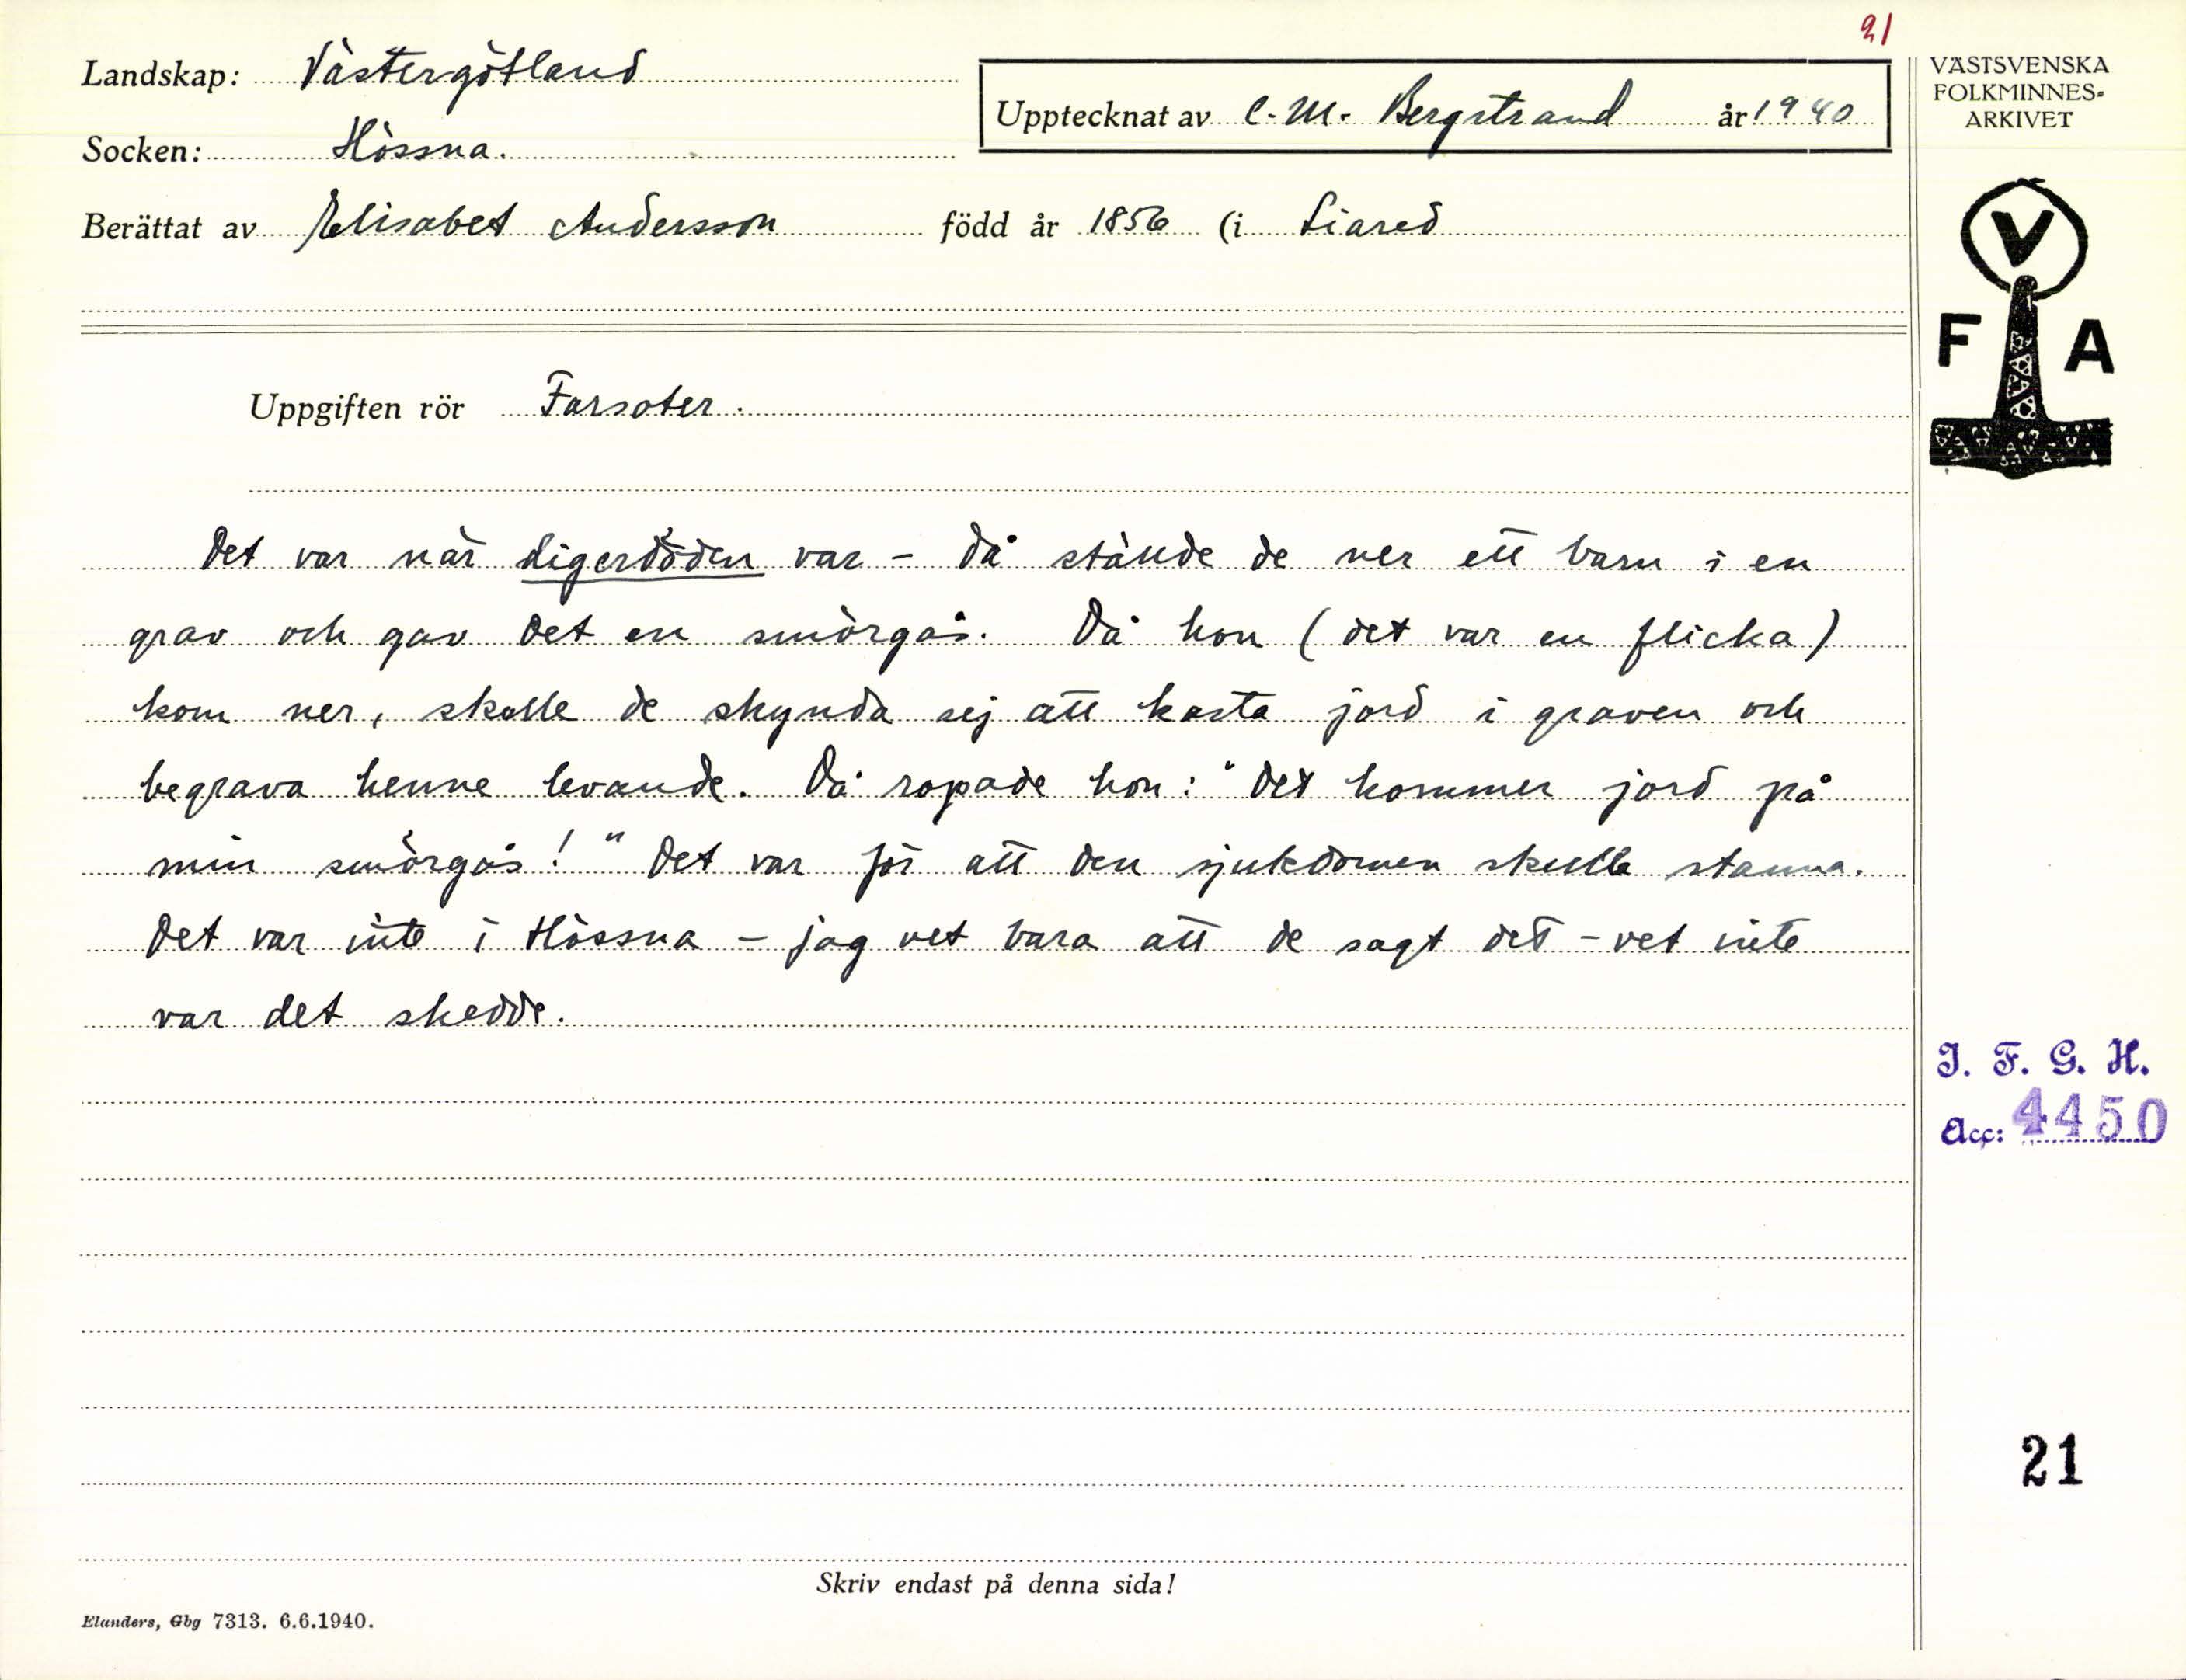 21
Landskap: Västergötland
Socken: Hössna.
Upptecknat av C. M. Bergstrand år 1940
Berättat av Elisabet Andersson född år 1856 (i Liared
Uppgiften rör Farsoter.
Det var när digerdöden var - då ställde de ner ett barn i en
grav och gav det en smörgås. Då hon (det var en flicka)
kom ner, skulle de skynda sej att kasta jord i graven och
begrava henne levande. Då ropade hon: "Det kommer jord på
min smörgås!" Det var för att den sjukdomen skulle stanna.
Det var inte i Hössna - jag vet bara att de sagt det - vet inte
var det skedde.
Skriv endast på denna sida!
Elanders, Gbg 7313. 6.6.1940.
VÄSTSVENSKA
FOLKMINNES-
ARKIVET
V
F A
I. F. G. H.
Acc: 4450
21